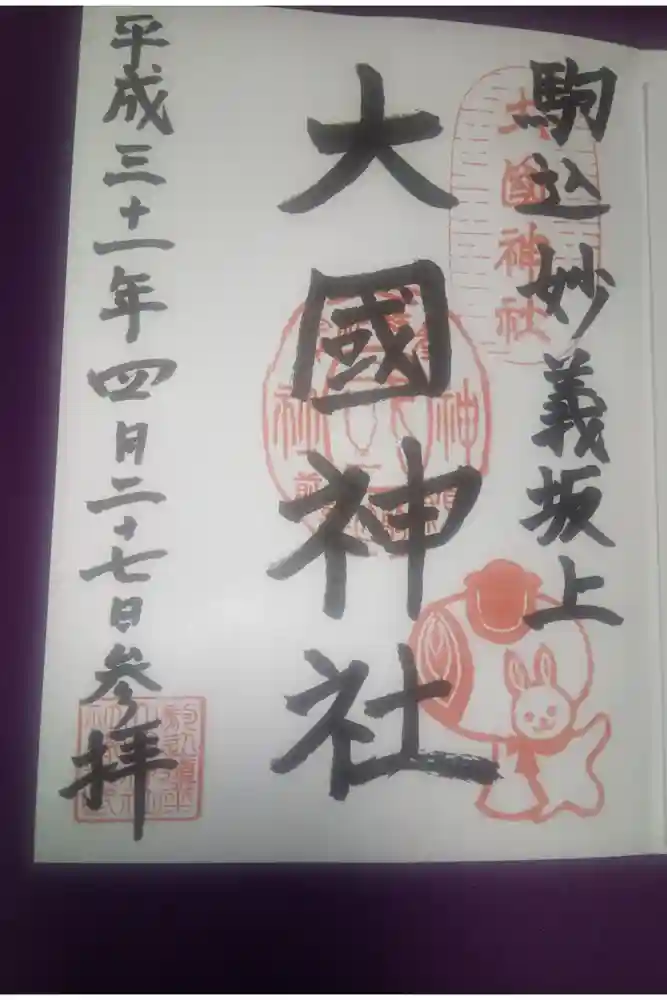 駒込妙義坂上
大國神社
大國神社
平成三十一年四月二十七日参拝